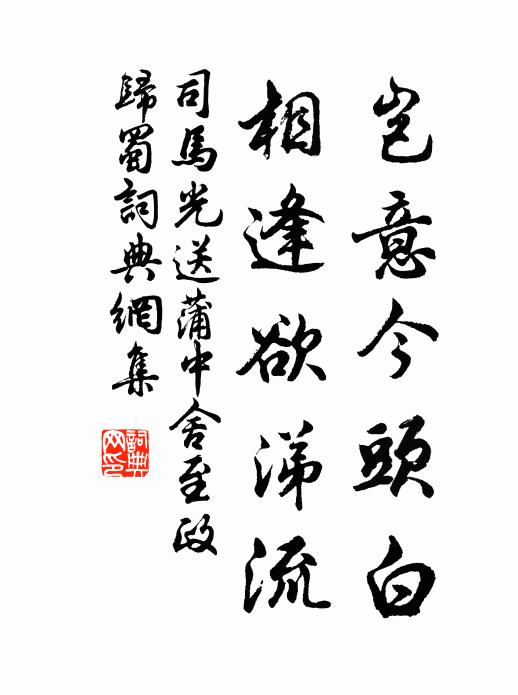 豈意今頭白
相逢欲涕流
司馬光送蒲中舍至政
歸蜀詞典網集
詞典
网印